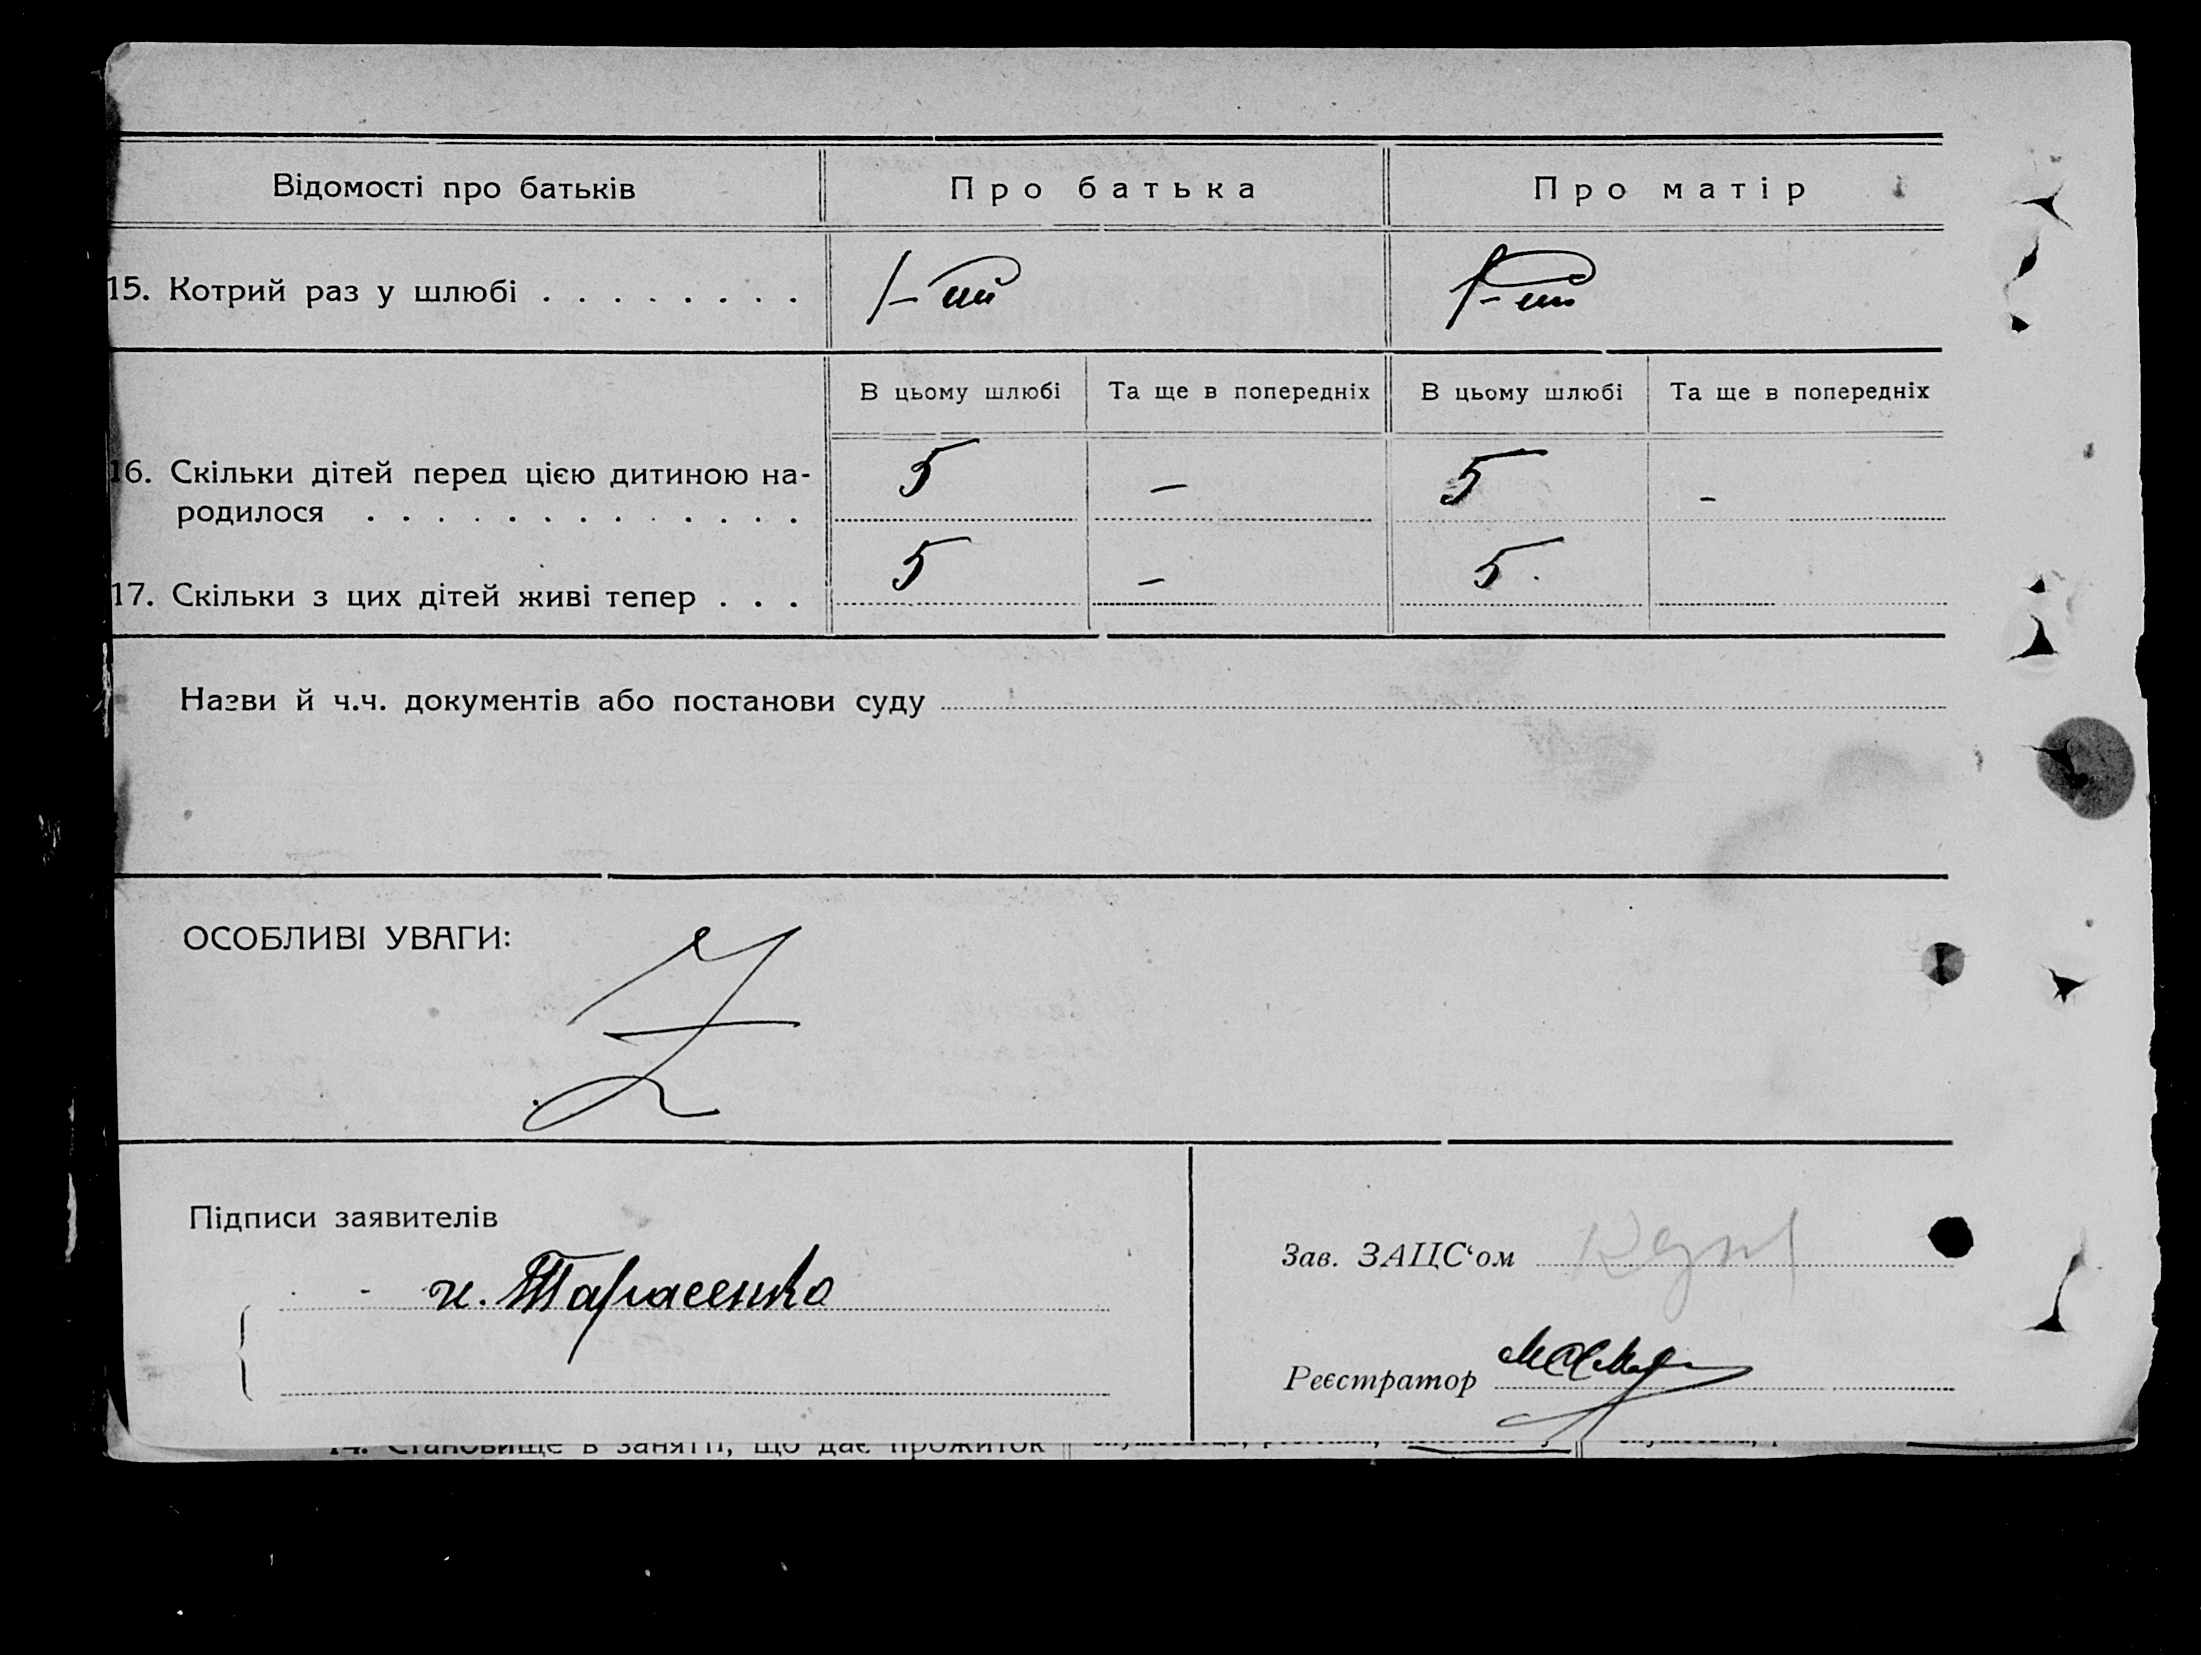 Відомості про батьків Про батька Про матір
15. Котрий раз у шлюбі . . . . . . . . 1-ий 1-ий
В цьому шлюбі Та ще в попередніх В цьому шлюбі Та ще в попередніх
16. Скільки дітей перед цією дитиною на-
родилося . . . . . . . . . . . . . 5 — 5 -
17. Скільки з цих дітей живі тепер . . . 5 — 5.
Назви й ч.ч. документів або постанови суду
ОСОБЛИВІ УВАГИ:
Z
Підписи заявителів
Зав. ЗАЦС‘ом
и. Тарасенко
Реєстратор
14. Становище в занятті, що дає прожиток